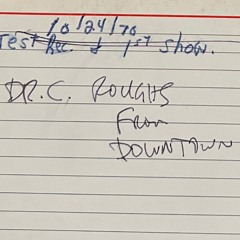 10/24/70
Test Rec. & 1st show.
DR. C. ROUGHS
FROM
DOWNTOWN